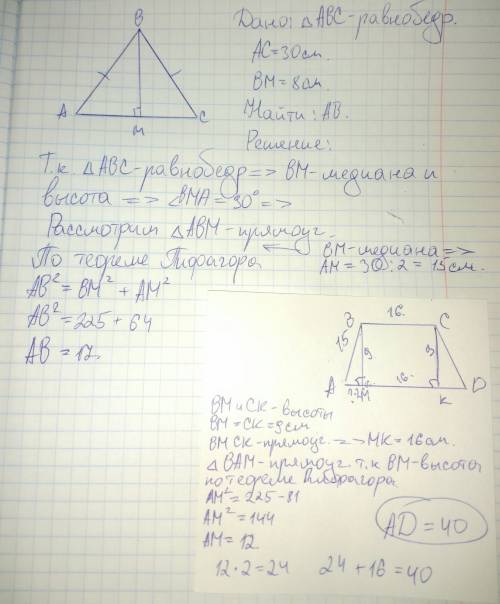 B
A
M
C
Дано: △ABC-равнобедр.
AC=30см.
BM=8см.
Найти: AB.
Решение:
Т.к △ABC-равнобедр=> BM-медиана и
высота => ∠BMA=30° =>
Рассмотрим △ABM-прямоуг.
BM-медиана=>
AM=30:2=15см.
По теореме Пифагора
AB²=BM²+AM²
AB²=225+64
AB=17.
16.
B
C
15
9
9
A
??M
16.
K
D
BM и CK-высоты
BM=CK=9см
BMCK-прямоуг.=>MK=16см.
△BAM-прямоуг. т.к BM-высота
по теореме Пифагора
AM²=225-81
AM²=144
AM=12
12·2=24 24+16=40
AD=40